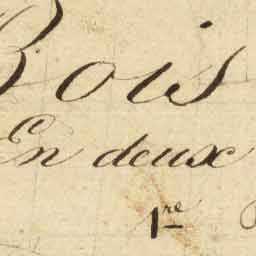 Bois
En deux
1re